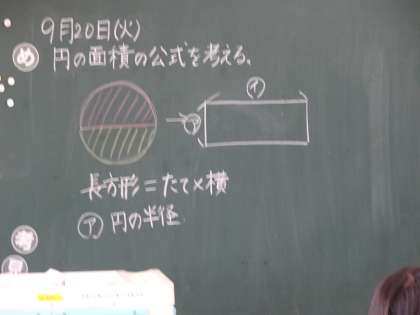 9月20日(火)
め 円の面積の公式を考える。
イ
ア
長方形=たて×横
ア 円の半径
考